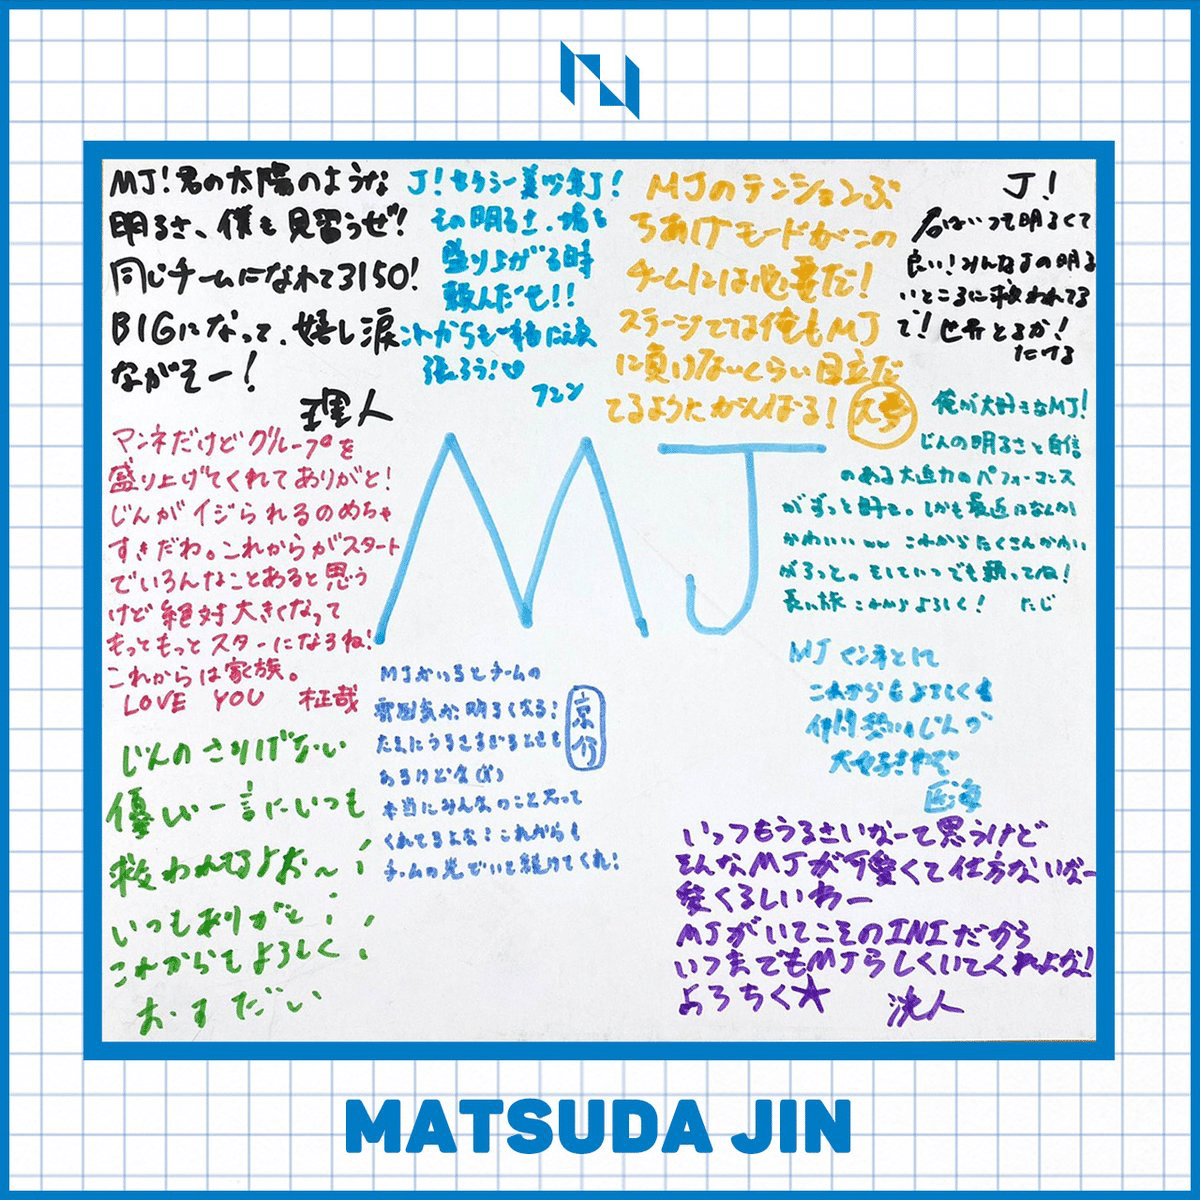 MJ!君の太陽のような
明るさ、僕も見習うぜ!!
同じチームになれて3150!
BIGになって、嬉し涙
ながそー!
理人
J!セクシー美少年J!
その明るさ、場を
盛り上がる時
頼んだぞ!!
これからも一緒に頑
張ろう!♡
フェン
MJのテンションぶ
ちあげモードがこの
チームには必要だ!
ステージでは俺もMJ
に負けないくらい目立だ
てるようにがんばる!
大夢
J!
君はいつも明るくて
良い!みんなJの明る
いところに救われてる
で!世界とるか!
たける
俺が大好きなMJ!
じんの明るさと自信
のある大迫力のパフォーマンス
がずっと好き。しかも最近はなんか
かわいいww これからたくさんかわい
がろっと。そしていつでも頼ってね!
長い旅 これからよろしく! たじ
マンネだけどグループを
盛り上げてくれてありがと!
じんがイジられるのめちゃ
すきだわ。これからがスタート
でいろんなことあると思う
けど絶対大きくなって
もっともっとスターになろね!
これからは家族。
LOVE YOU 柾哉
MJ
MJがいるとチームの
雰囲気が明るくなる!
たまにうるさすぎるときも
あるけどな(笑)
本当にみんなのこと思って
くれてるよな!これからも
チームの光でいて続けてくれ!
京介
MJ マンネとして
これからもよろしくな
仲間想いなじんが
大好きやで
匠海
じんのさりげない
優しい一言にいつも
救われてるよぉ〜!
いつもありがと!
これからもよろしく!
おすだい
いっつもうるさいなーて思うけど
そんなMJが可愛くて仕方ないなー
愛くるしいわー
MJがいてこそのINIだから
いつまでもMJらしくいてくれよな!
よろちく★ 洸人
MATSUDA JIN